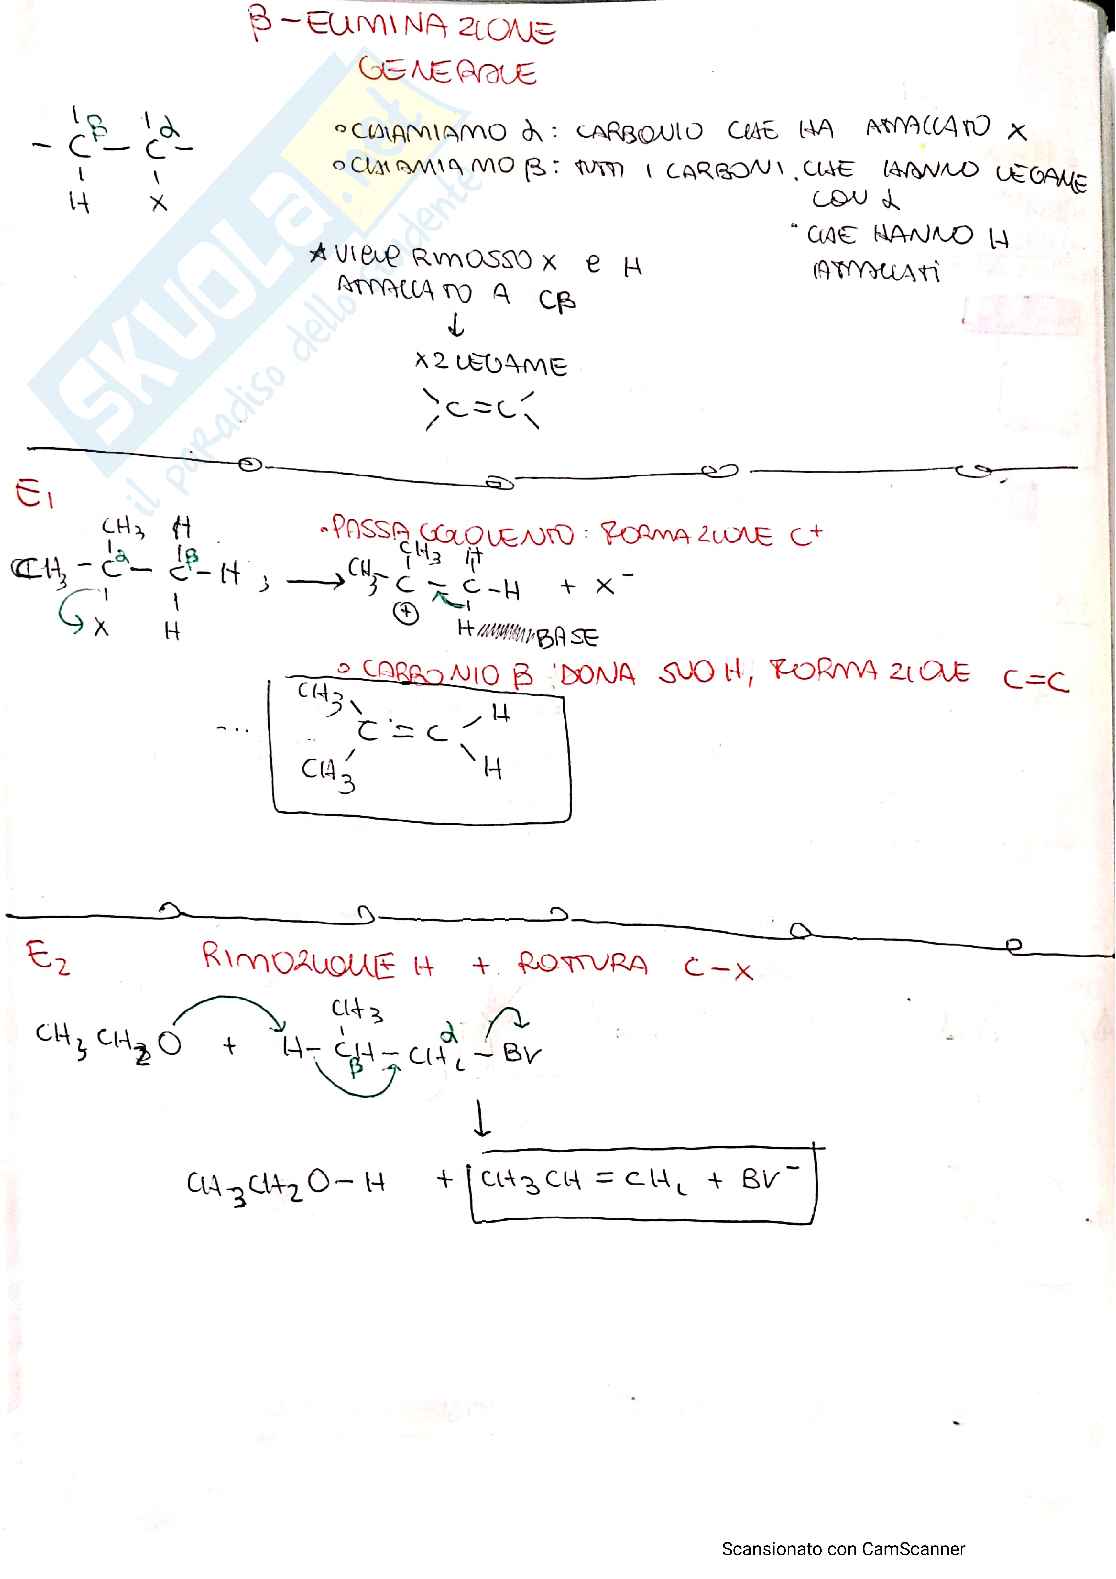 β-ELIMINAZIONE
GENERALE
- Cβ - Cα -
H X
° CHIAMIAMO α: CARBONIO CHE HA ATTACCATO X
° CHIAMIAMO β: TUTTI I CARBONI. CHE HANNO LEGAME
CON α
" CHE HANNO H
ATTACCATI
* VIENE RIMOSSO X e H
ATTACCATO A Cβ
↓
x2 LEGAME
C=C
SKUOLA.net
il paradiso dello studente
E1
• PASSAGGIO LENTO: FORMAZIONE C+
CH3 H
CH3 - Cα - Cβ - H ; →
X H
CH3 H
CH3 - C - C - H + X-
+
H BASE
° CARBONIO β DONA SUO H, FORMAZIONE C=C
...
CH3 H
C = C
CH3 H
E2 RIMOZIONE H + ROTTURA C-X
CH3
CH3CH2O + H - CH - CH2 - Br
β α
↓
CH3CH2O-H + CH3CH = CH2 + Br-
Scansionato con CamScanner